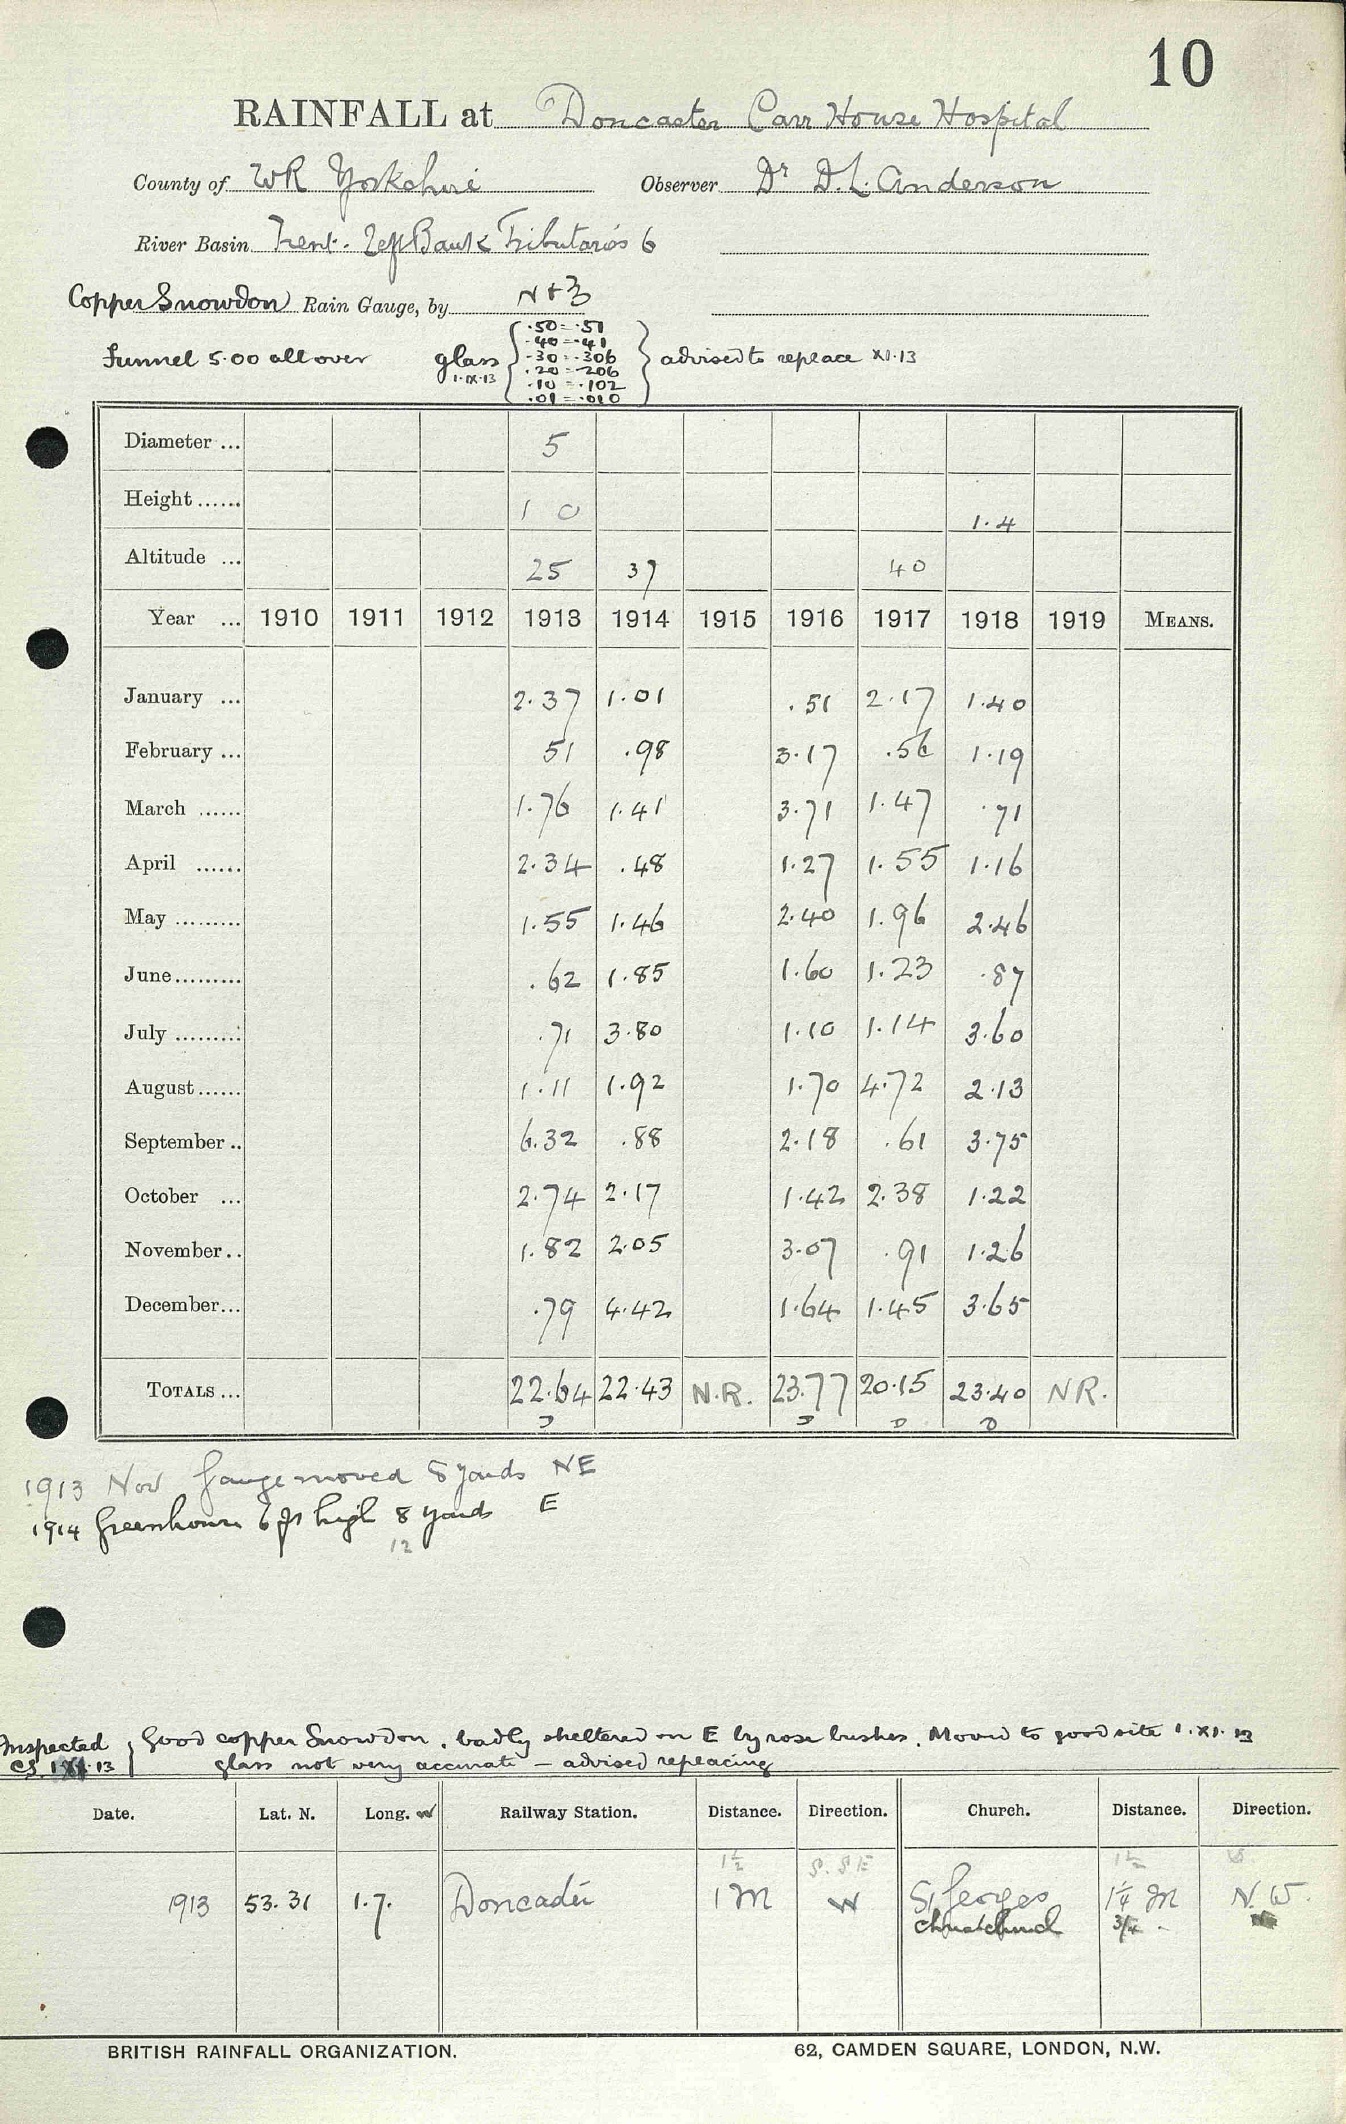 10
RAINFALL at Doncaster Carr House Hospital
County of WR Yorkshire Observer Dr D.L. Anderson
River Basin Trent. Left Bank Tributaries 6
Copper Snowdon Rain Gauge, by N & Z
Funnel 5.00 all over glass 1.IX.13 { .50 = .51 } advised to replace XI.13
.40 = .41
.30 = .306
.20 = .206
.10 = .102
.01 = .010
Diameter ... 5
Height ...... 1 0 1.4
Altitude ... 25 37 40
Year ... 1910 1911 1912 1913 1914 1915 1916 1917 1918 1919 MEANS.
January ... 2.37 1.01 .51 2.17 1.40
February ... 51 .98 3.17 .56 1.19
March ...... 1.76 1.41 3.71 1.47 .71
April ...... 2.34 .48 1.27 1.55 1.16
May ......... 1.55 1.46 2.40 1.96 2.46
June......... .62 1.85 1.60 1.23 .87
July ......... .71 3.80 1.10 1.14 3.60
August...... 1.11 1.92 1.70 4.72 2.13
September .. 6.32 .88 2.18 .61 3.75
October ... 2.74 2.17 1.42 2.38 1.22
November.. 1.82 2.05 3.07 .91 1.26
December... .79 4.42 1.64 1.45 3.65
TOTALS ... 22.64 22.43 N.R. 23.77 20.15 23.40 NR.
1913 Nov Gauge moved 8 yards NE
1914 Greenhouse 6 ft high 8 yards E
12
Inspected } Good copper Snowdon, badly sheltered on E by rose bushes. Moved to good site 1.XI.13
CS 1.XI.13 glass not very accurate — advised replacing
Date. Lat. N. Long. W Railway Station. Distance. Direction. Church. Distance. Direction.
1½ S.SE 1½
1913 53.31 1.7. Doncaster 1 M W St Georges 1¼ M N.W.
Christchurch ¾ -
BRITISH RAINFALL ORGANIZATION. 62, CAMDEN SQUARE, LONDON, N.W.